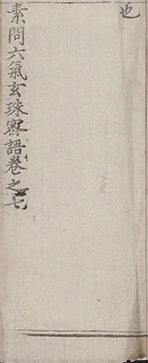 也
素問六氣玄珠密語卷之七